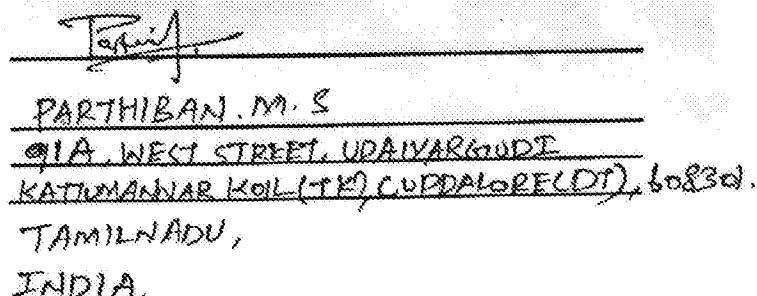 PARTHIBAN. M. S
91A, WEST STREET, UDAIYARGUDI
KATTUMANNAR KOIL (TK), CUDDALORE (DT), 608301.
TAMILNADU,
INDIA.